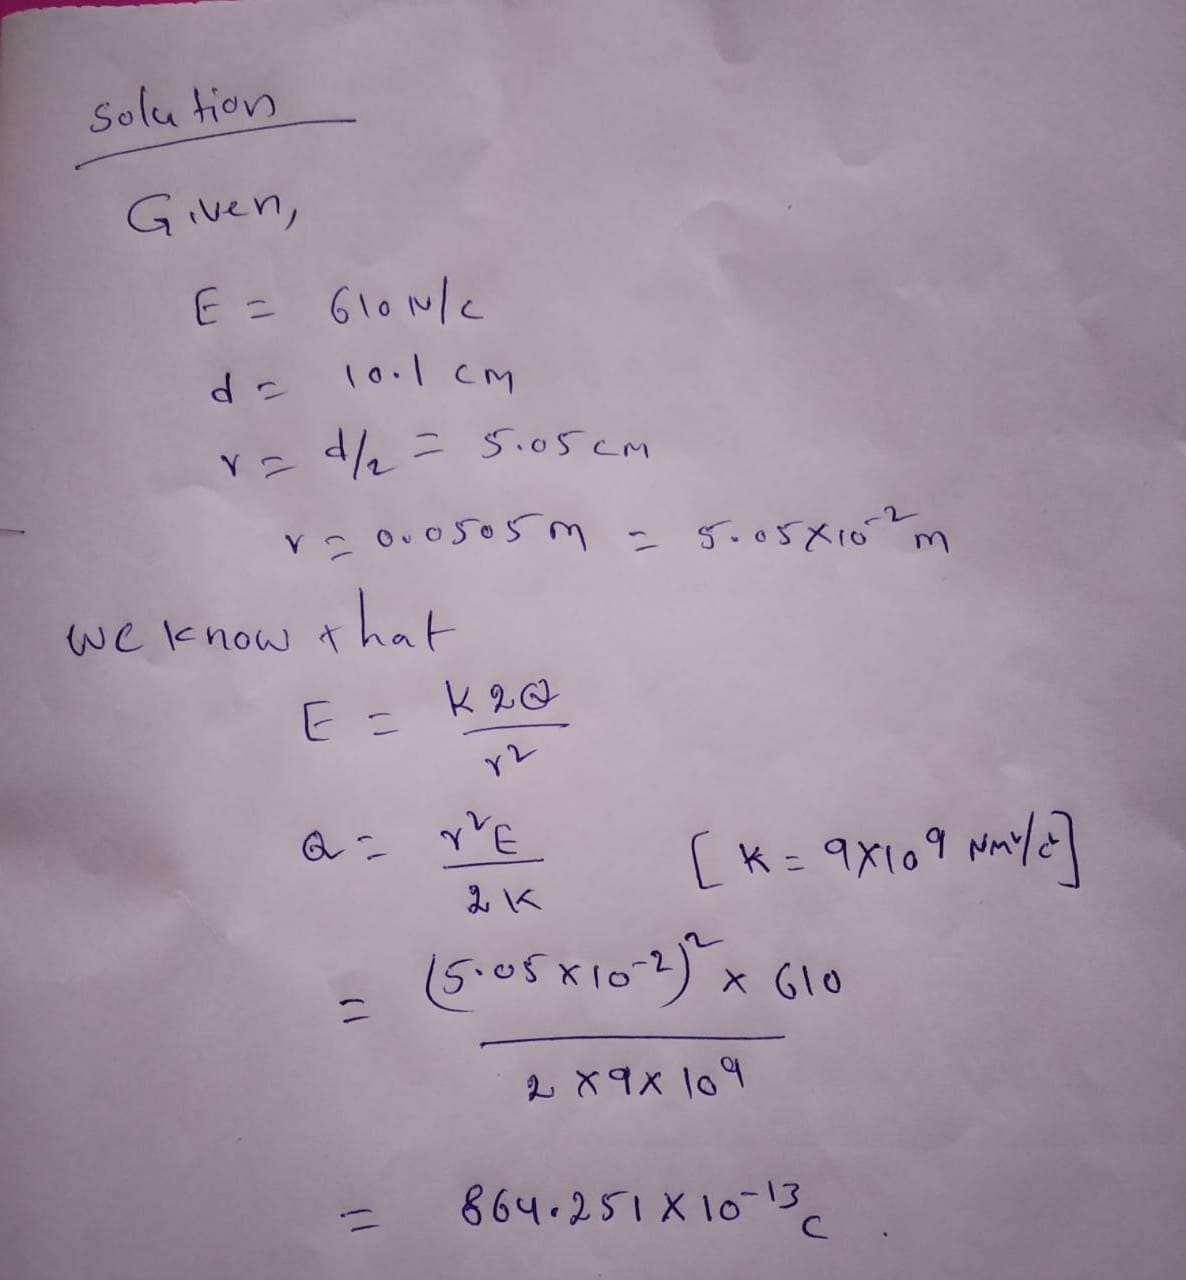 Solution
Given,
E = 610 N/C
d = 10.1 cm
r = d/2 = 5.05 cm
r = 0.0505 m = 5.05×10⁻² m
we know that
E = K2Q / r²
Q = r²E / 2K [K = 9×10⁹ Nm²/c²]
= (5.05×10⁻²)² × 610 / 2×9×10⁹
= 864.251 × 10⁻¹³ C.